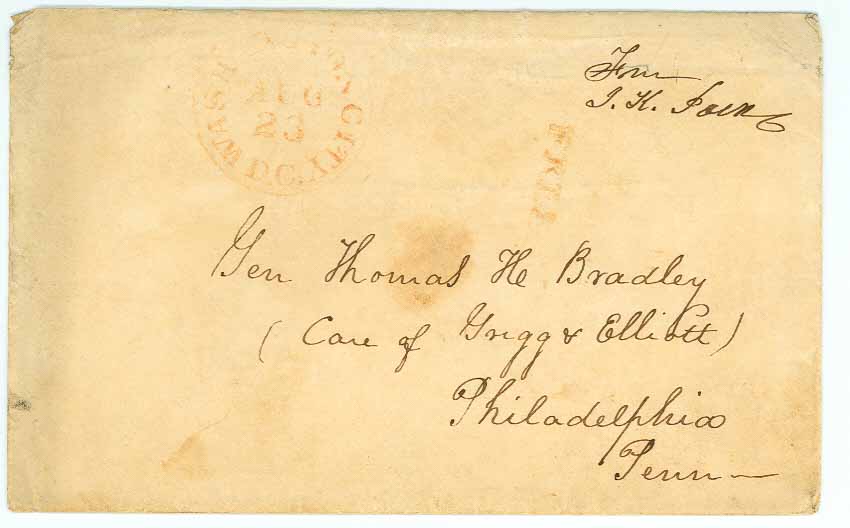 From
J. K. Polk
WASHINGTON CITY
AUG
23
D.C.
FREE
Gen Thomas H Bradley
( Care of Grigg & Elliott )
Philadelphia
Penn